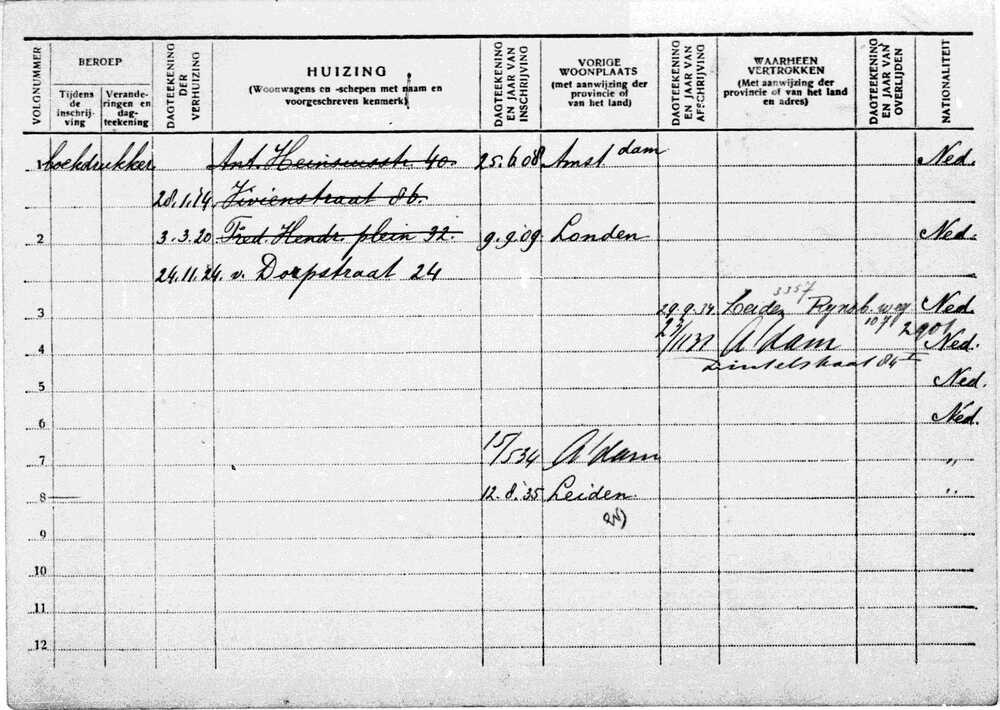 VOLGNUMMER
BEROEP
Tijdens de inschrijving
Veranderingen en dagteekening
DAGTEEKENING DER VERHUIZING
HUIZING
(Woonwagens en -schepen met naam en voorgeschreven kenmerk)
DAGTEEKENING EN JAAR VAN INSCHRIJVING
VORIGE WOONPLAATS
(met aanwijzing der provincie of van het land)
DAGTEEKENING EN JAAR VAN AFSCHRIJVING
WAARHEEN VERTROKKEN
(Met aanwijzing der provincie of van het land en adres)
DAGTEEKENING EN JAAR VAN OVERLIJDEN
NATIONALITEIT
1 boekdrukker Ant. Heinsiusstr. 40. 25.6.08 Amstdam Ned.
28.1.14 Vivienstraat 86.
2 3.3.20 Fred. Hendr. plein 32. 9.9.09 Londen Ned.
24.11.24. v. Dorpstraat 24
3357
3 29.9.34 Leiden Rynsb. weg Ned.
107 2901
4 A'dam Ned.
straat 84 I
5 Ned.
6 Ned.
7 15/5 34 A'dam "
8 12.8.'35 Leiden. "
9
10
11
12